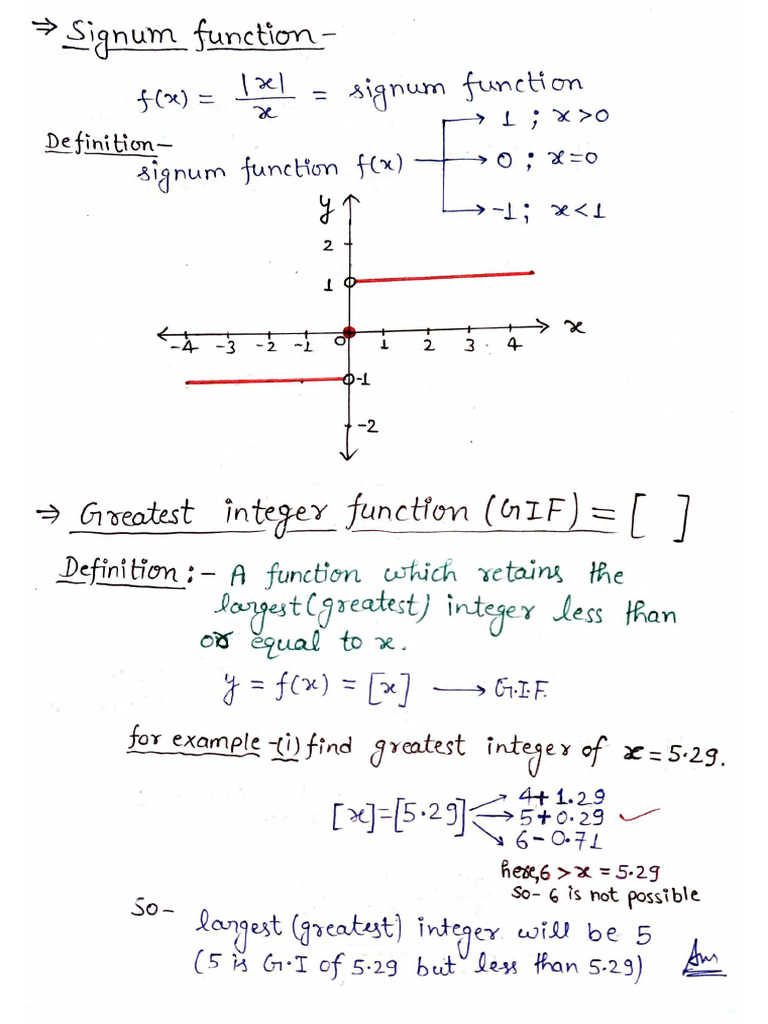 ⇒ Signum function -
f(x) = |x|/x = signum function
Definition-
signum function f(x) → 1 ; x>0
→ 0 ; x=0
→ -1 ; x<1
y
2
1
-4 -3 -2 -1 0 1 2 3 4 x
-1
-2
⇒ Greatest integer function (GIF) = [ ]
Definition :- A function which retains the
largest (greatest) integer less than
or equal to x.
y = f(x) = [x] → G.I.F.
for example -(i) find greatest integer of x = 5.29.
[x]=[5.29] → 4+1.29
→ 5+0.29 ✓
→ 6-0.71
here, 6 > x = 5.29
So- 6 is not possible
So- largest (greatest) integer will be 5
(5 is G.I of 5.29 but less than 5.29) Ans